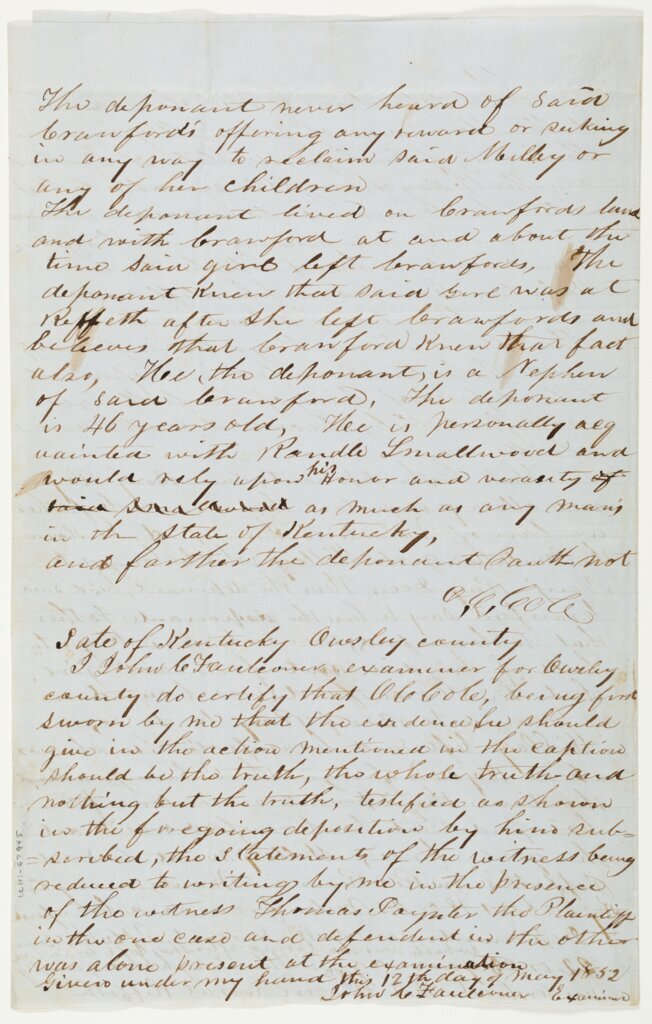 The deponant never heard of Said
Crawford's offering any reward or seeking
in any way to reclaim said Milley or
any of her children
The deponant lived on Crawfords land
and with Crawford at and about the
time said girl left Crawfords, The
deponant Knew that said Girl was at
after she left Crawfords and
believes that Crawford Knew that fact
also, Hee, the deponant, is a Nephew
of said Crawford, The deponant
is 46 years old, Hee is personally acq
uainted with Randle Smallwood and
would rely upon his Honor and verasity of
said as much as any man's
in the State of Kentucky,
and farther the deponant Sauth not
O. C. Cole
State of Kentucky Owsley county
I John C Faulconer examiner for Owsley
county do certify that O C Cole, being first
sworn by me that the evidence he should
give in the action mentioned in the caption
should be the truth, the whole truth and
nothing but the truth, testified as shown
in the foregoing deposition by him sub=
=scribed, the Statements of the witness being
reduced to writing by me in the presence
of the witness Thomas Paynter the Plaintiff
in the one case and defendent in the other
was alone present at the examination
Given under my hand this 12th day of May 1852
John C Faulconer Examiner
ICHi-67945